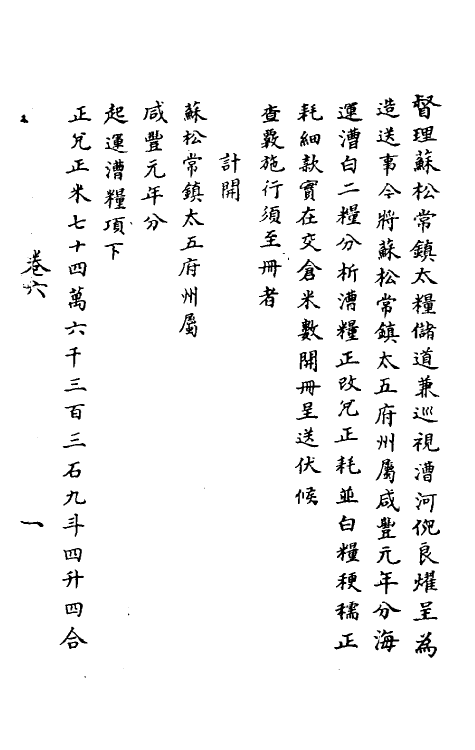 督理蘇松常鎮太糧儲道兼巡視漕河倪良燿呈為
造送事今將蘇松常鎮太五府州屬咸豐元年分海
運漕白二糧分析漕糧正改兌正耗並白糧稉糯正
耗細款實在交倉米數開冊呈送伏候
查覈施行須至冊者
計開
蘇松常鎮太五府州屬
咸豐元年分
起運漕糧項下
正兌正米七十四萬六千三百三石九斗四升四合
卷六
一